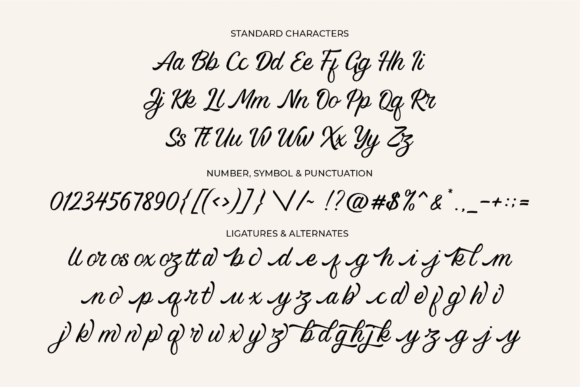 STANDARD CHARACTERS
Aa Bb Cc Dd Ee Ff Gg Hh Ii
Jj Kk Ll Mm Nn Oo Pp Qq Rr
Ss Tt Uu Vv Ww Xx Yy Zz
NUMBER, SYMBOL & PUNCTUATION
01234567890{[(<>)]}\/|~!?@#$%^&*.,_-+:;=
LIGATURES & ALTERNATES
ll or os ox oz tt a b c d e f g h i j k l m
n o p q r t u x y z a b c d e f g h i
j k m n p q r u w x y z b d g h j k y z g j y